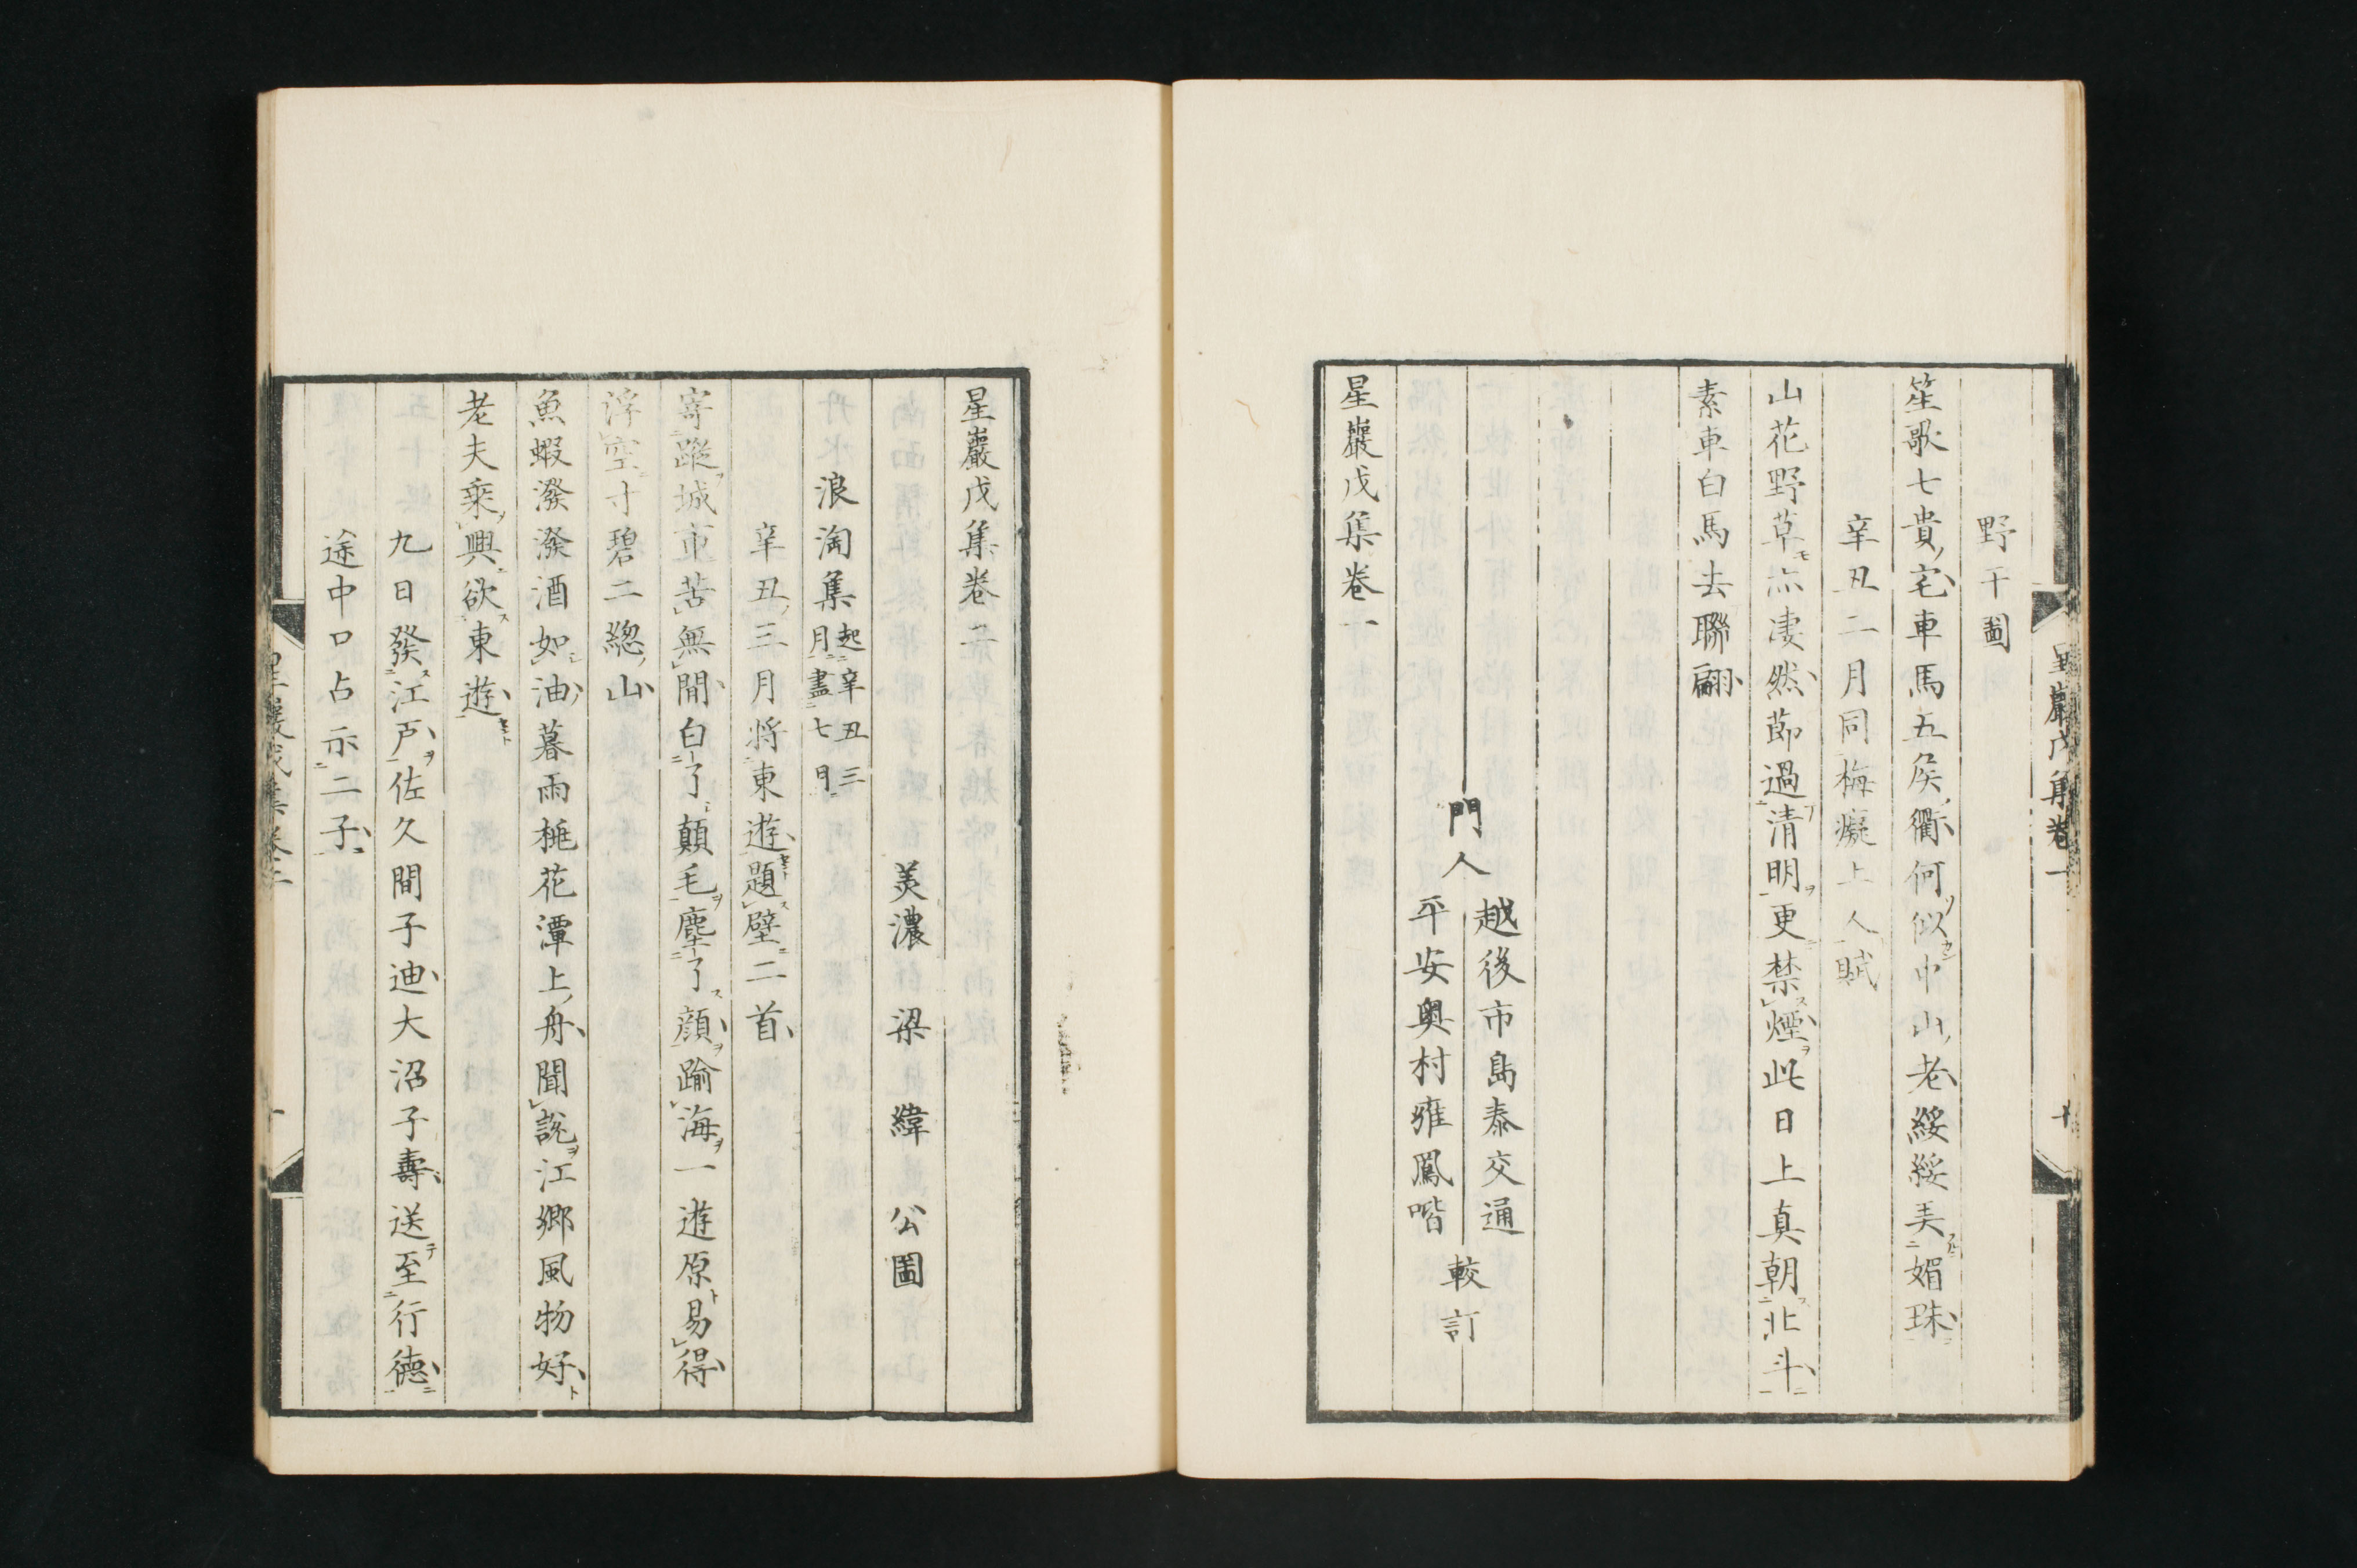 野干圖
笙歌七貴宅車馬五侯衢何似中山老綏綏美媚珠
辛丑二月同梅癡上人賦
山花野草亦凄然節過清明更禁煙此日上真朝北斗
素車白馬去聯翩
門人
越後市島泰交通
平安奥村雍鳳喈
較訂
星巖戊集卷一
星巖戊集卷一
星巖戊集卷二
美濃 梁 緯 公圖
浪淘集
起辛丑三
月盡七月
辛丑三月將東遊題壁二首
寄蹤城市苦無間白了顛毛塵了顔踰海一遊原易得
浮空寸碧二總山
魚蝦潑潑酒如油暮雨桃花潭上舟聞說江鄉風物好
老夫乘興欲東遊
九日發江戸佐久間子迪大沼子壽送至行德
途中口占示二子
星巖戊集卷二